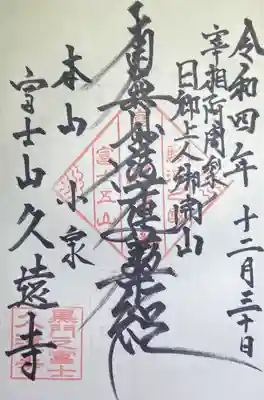 令和四年 十二月三十日
宰相阿闍梨
日郷上人御開山
南無妙法蓮華経
本山 小泉
富士山久遠寺
黒門之富士